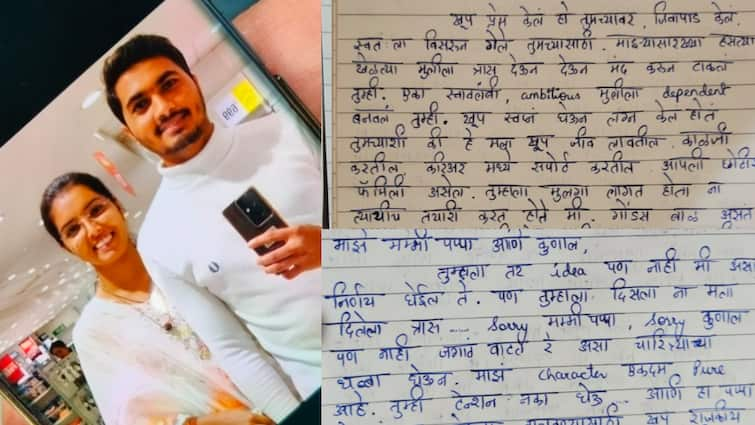 खूप प्रेम केलं हो तुमच्यावर, जिवापाड केलं.
स्वतःला विसरुन गेले तुमच्यासाठी. माझ्यासारख्या हसत्या
खेळत्या मुलीला त्रास देऊन देऊन मंद करुन टाकलं
तुम्ही. एका स्वावलंबी, ambitious मुलीला dependent
बनवलं तुम्ही. खूप स्वप्नं घेऊन लग्न केल होतं
तुमच्याशी की हे मला खूप जीव लावतील. काळजी
करतील, करिअर मध्ये सपोर्ट करतील. आपली छोटीशी
फॅमिली असेल. तुम्हाला मुलगा लागत होता ना
त्याचीच तयारी करत होते मी. गोंडस बाळ असत
माझे मम्मी पप्पा आणि कुणाल,
तुम्हाला तर idea पण नाही मी असा
निर्णय घेईल ते. पण तुम्हाला दिसला ना मला
दिलेला त्रास .... Sorry मम्मी पप्पा, Sorry कुणाल
पण नाही जगावं वाटत रे असा चारित्र्याच्या
धब्बा घेऊन. माझं character एकदम Pure
आहे. तुम्ही टेन्शन नका घेऊ .. आणि हा पप्पा
खूप राजकीय